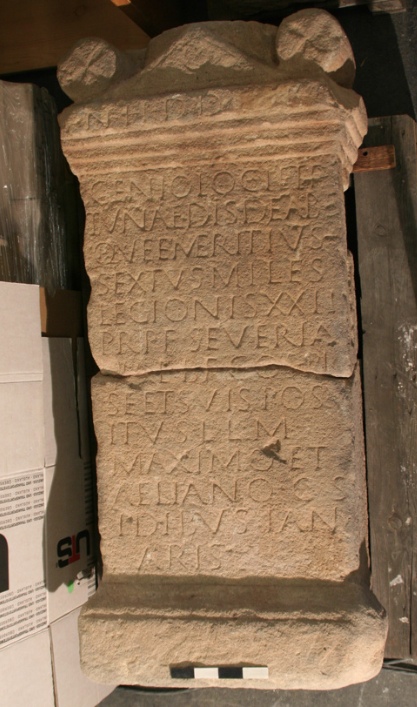 GENIO LOCI ET F
TVNAE DIS DEAB
QVE EMERITIVS
SEXTVS MILES
LEGIONIS XXII
PR P F SEVERIA
SE ET SVIS POS
ITVS L L M
MAXIMO ET
AELIANO C S
IDIBVS IAN
VARIS